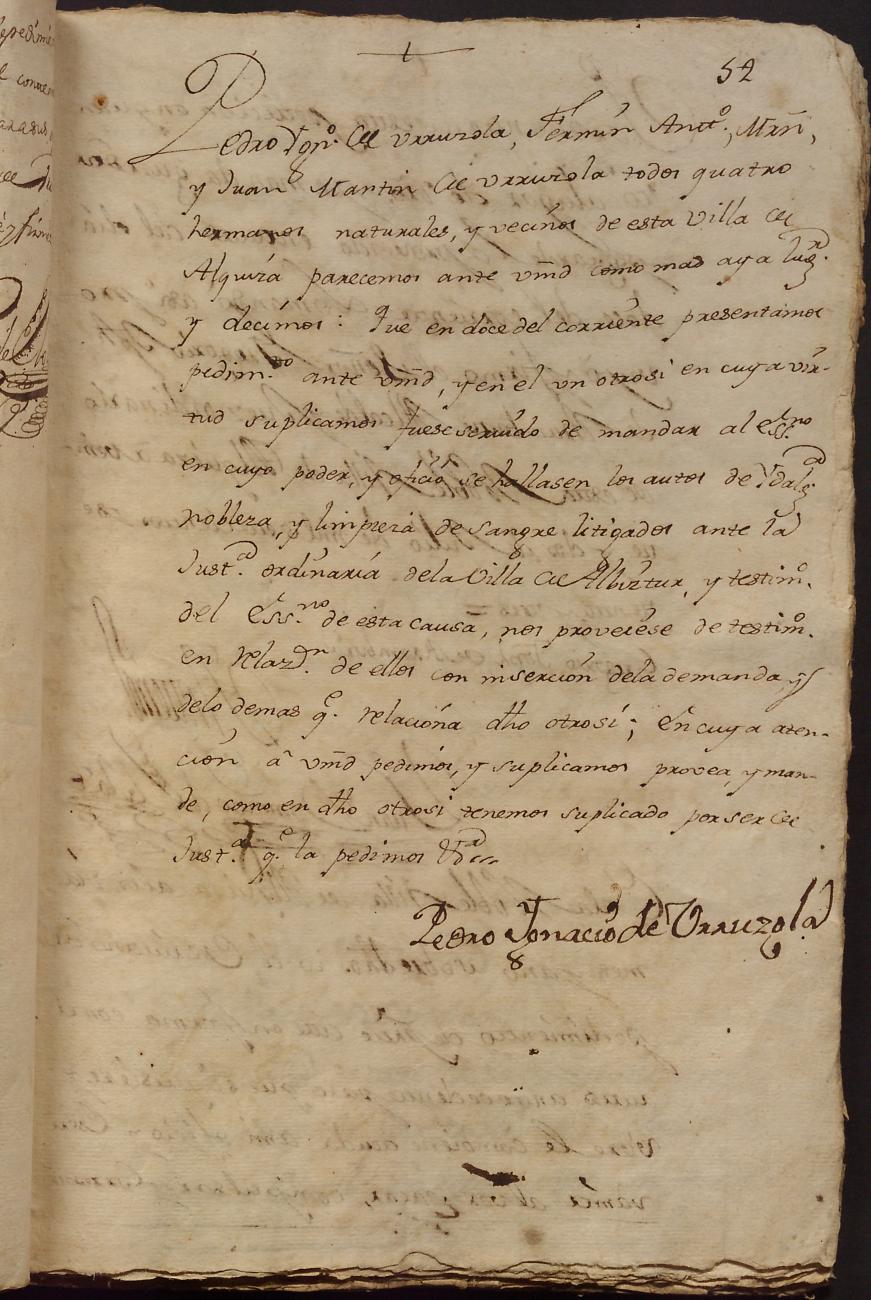 52
Pedro Ygn.º de Urruzola, Fermin Ant.º, Mrn̄,
y Juan Martin de Urruzola todos quatro
hermanos naturales, y vecinos de esta Villa de
Alquiza parecemos ante vm̄d como mas aya lug.r
y decimos: Que en doce del corriente presentamos
pedim.to ante vm̄d, y en el un otrosi en cuya vir-
tud suplicamos fuese servido de mandar al ess.no
en cuyo poder, y oficio se hallasen los autos de Ydalg.a
nobleza, y limpieza de sangre litigados ante la
Just.a ordinaria de la Villa de Albiztur, y testim.º
del Ess.no de esta causa, nos proveiese de testim.º
en relaz.on de ellos con insercion de la demanda, y
de lo demas q.e relaciona dho otrosi; En cuya aten-
cion a vm̄d pedimos, y suplicamos provea, y man-
de, como en dho otrosi tenemos suplicado por ser de
Just.a q.e la pedimos &a
Pedro Ygnacio de Urruzola